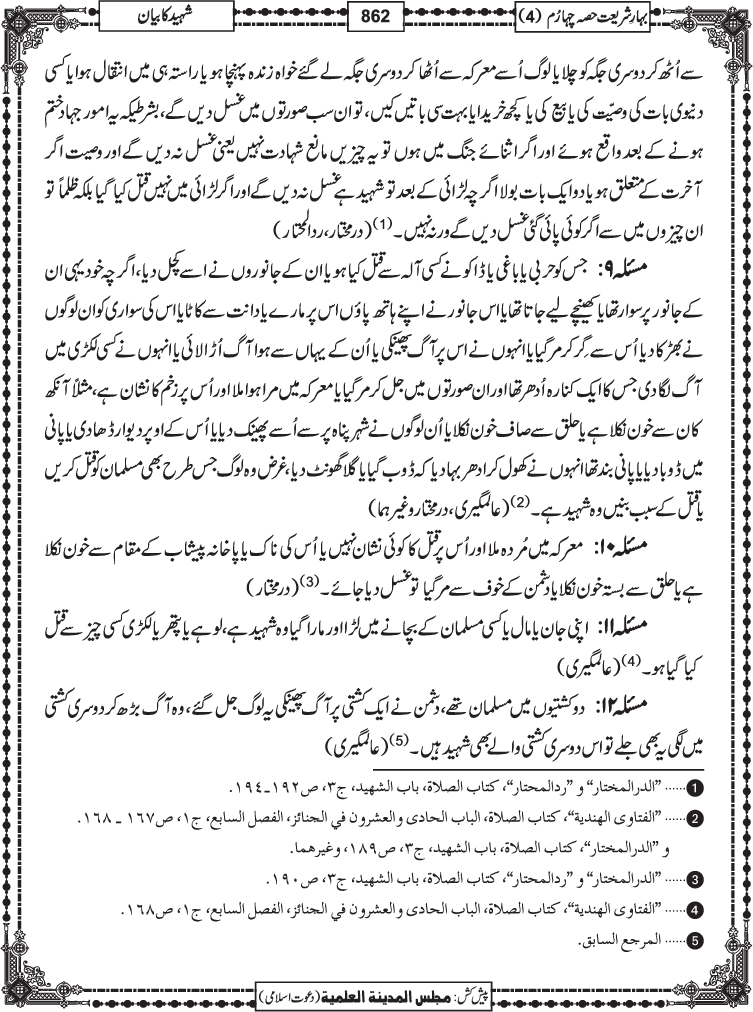 بہارِشریعت حصہ چہارم (4)
862
شہید کا بیان
سے اُٹھ کر دوسری جگہ کو چلا یا لوگ اُسے معرکہ سے اُٹھا کر دوسری جگہ لے گئے خواہ زندہ پہنچا ہو یا راستہ ہی میں انتقال ہوا یا کسی
دنیوی بات کی وصیّت کی یا بیع کی یا کچھ خریدا یا بہت سی باتیں کیں، تو ان سب صورتوں میں غسل دیں گے، بشرطیکہ یہ امور جہاد ختم
ہونے کے بعد واقع ہوئے اور اگر اثنائے جنگ میں ہوں تو یہ چیزیں مانع شہادت نہیں یعنی غسل نہ دیں گے اور وصیت اگر
آخرت کے متعلق ہو یا دو ایک بات بولا اگرچہ لڑائی کے بعد تو شہید ہے غسل نہ دیں گے اور اگر لڑائی میں نہیں قتل کیا گیا بلکہ ظلماً تو
ان چیزوں میں سے اگر کوئی پائی گئی غسل دیں گے ورنہ نہیں۔ (1) (درمختار، ردالمحتار)
مسئلہ ۹: جس کو حربی یا باغی یا ڈاکو نے کسی آلہ سے قتل کیا ہو یا ان کے جانوروں نے اسے کچل دیا، اگرچہ خود یہی ان
کے جانور پر سوار تھا یا کھینچے لیے جاتا تھا یا اس جانور نے اپنے ہاتھ پاؤں اس پر مارے یا دانت سے کاٹا یا اس کی سواری کو ان لوگوں
نے بھڑکا دیا اُس سے گر کر مر گیا یا انہوں نے اس پر آگ پھینکی یا اُن کے یہاں سے ہوا آگ اُڑا لائی یا انہوں نے کسی لکڑی میں
آگ لگا دی جس کا ایک کنارہ اُدھر تھا اور ان صورتوں میں جل کر مر گیا یا معرکہ میں مرا ہوا ملا اور اُس پر زخم کا نشان ہے، مثلاً آنکھ
کان سے خون نکلا ہے یا حلق سے صاف خون نکلا یا اُن لوگوں نے شہر پناہ پر سے اُسے پھینک دیا یا اُس کے اوپر دیوار ڈھا دی یا پانی
میں ڈوبا دیا یا پانی بند تھا انہوں نے کھول کر ادھر بہا دیا کہ ڈوب گیا یا گلا گھونٹ دیا، غرض وہ لوگ جس طرح بھی مسلمان کو قتل کریں
یا قتل کے سبب بنیں وہ شہید ہے۔ (2) (عالمگیری، درمختار وغیرہما)
مسئلہ ۱۰: معرکہ میں مُردہ ملا اور اُس پر قتل کا کوئی نشان نہیں یا اُس کی ناک یا پاخانہ پیشاب کے مقام سے خون نکلا
ہے یا حلق سے بستہ خون نکلا یا دشمن کے خوف سے مر گیا تو غسل دیا جائے۔ (3) (درمختار)
مسئلہ ۱۱: اپنی جان یا مال یا کسی مسلمان کے بچانے میں لڑا اور مارا گیا وہ شہید ہے، لوہے یا پتھر یا لکڑی کسی چیز سے قتل
کیا گیا ہو۔ (4) (عالمگیری)
مسئلہ ۱۲: دو کشتیوں میں مسلمان تھے، دشمن نے ایک کشتی پر آگ پھینکی یہ لوگ جل گئے، وہ آگ بڑھ کر دوسری کشتی
میں لگی یہ بھی جلے تو اس دوسری کشتی والے بھی شہید ہیں۔ (5) (عالمگیری)
1 ...... "الدرالمختار" و "ردالمحتار"، کتاب الصلاة، باب الشهيد، ج۳، ص۱۹۲۔۱۹٤.
2 ...... "الفتاوی الهندية"، کتاب الصلاة، الباب الحادی والعشرون في الجنائز، الفصل السابع، ج۱، ص۱٦۷ ۔ ۱٦۸.
و "الدرالمختار"، کتاب الصلاة، باب الشهيد، ج۳، ص۱۸۹، وغيرهما.
3 ...... "الدرالمختار" و "ردالمحتار"، کتاب الصلاة، باب الشهيد، ج۳، ص۱۹۰.
4 ...... "الفتاوی الهندية"، کتاب الصلاة، الباب الحادی والعشرون في الجنائز، الفصل السابع، ج۱، ص۱٦۸.
5 ...... المرجع السابق.
پیش کش: مجلس المدينة العلمية (دعوتِ اسلامی)